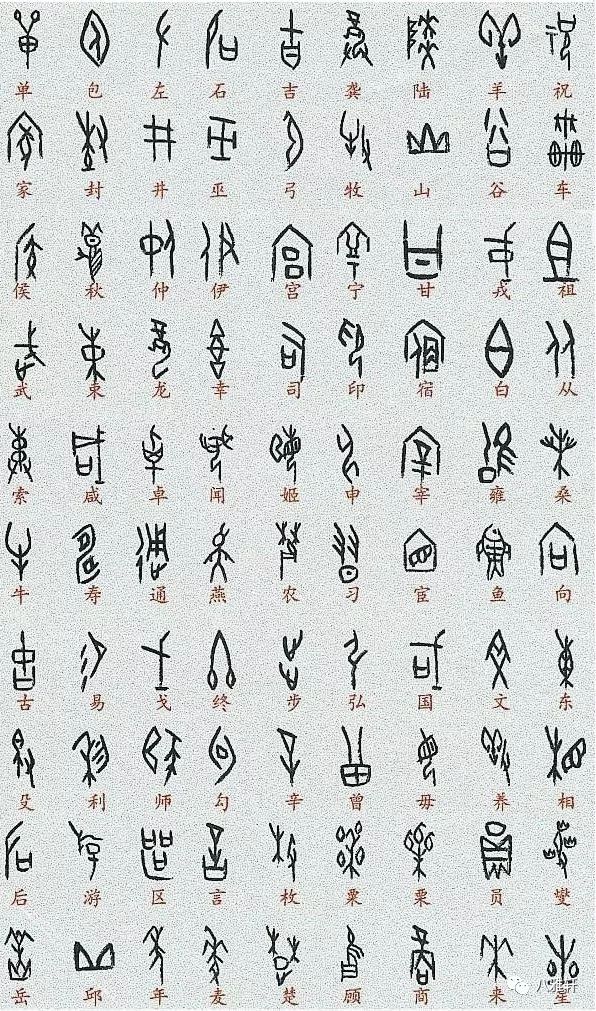 单 包 左 石 吉 龚 陆 羊 祝
家 封 井 巫 弓 牧 山 谷 车
侯 秋 仲 伊 宫 宁 甘 戎 祖
武 束 龙 幸 司 印 宿 白 从
索 咸 卓 闻 姬 申 宰 雍 桑
牛 寿 通 燕 农 习 宦 鱼 向
古 易 戈 终 步 弘 国 文 东
殳 利 师 勾 辛 曾 毋 养 相
后 游 区 言 枚 粟 栗 员 燮
岳 邱 年 麦 楚 顾 商 来 星
八雅轩